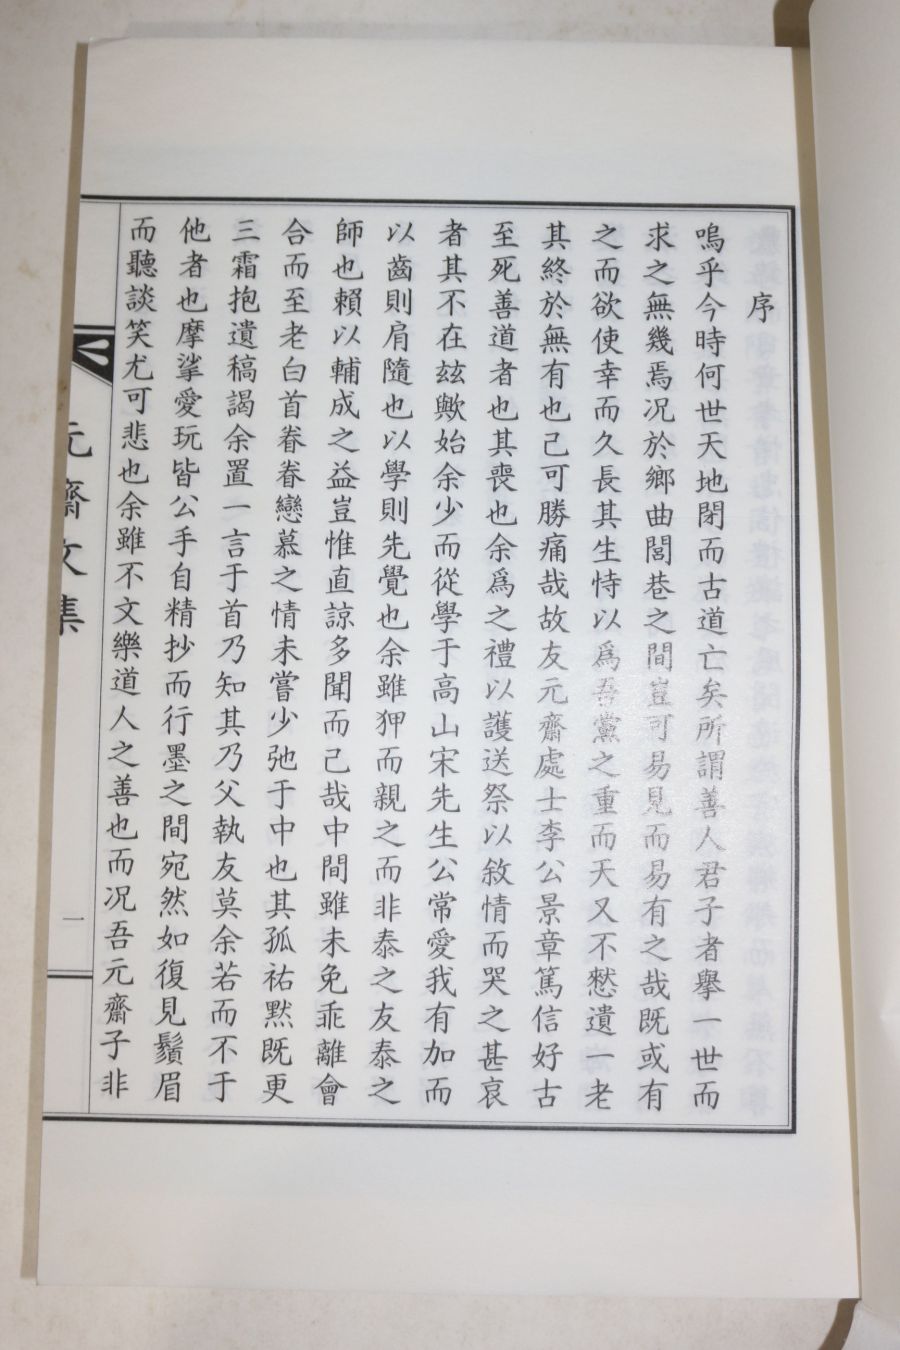 序
嗚乎今時何世天地閉而古道亡矣所謂善人君子者擧一世而
求之無幾焉况於鄉曲閭巷之間豈可易見而易有之哉既或有
之而欲使幸而久長其生恃以爲吾黨之重而天又不憗遺一老
其終於無有也己可勝痛哉故友元齋處士李公景章篤信好古
至死善道者也其喪也余爲之禮以護送祭以敘情而哭之甚哀
者其不在玆歟始余少而從學于高山宋先生公常愛我有加而
以齒則肩隨也以學則先覺也余雖狎而親之而非泰之友泰之
師也賴以輔成之益豈惟直諒多聞而己哉中間雖未免乖離會
合而至老白首眷眷戀慕之情未嘗少弛于中也其孤祐默既更
三霜抱遺稿謁余置一言于首乃知其乃父執友莫余若而不于
他者也摩挲愛玩皆公手自精抄而行墨之間宛然如復見鬚眉
而聽談笑尤可悲也余雖不文樂道人之善也而况吾元齋子非
元齋文集
一